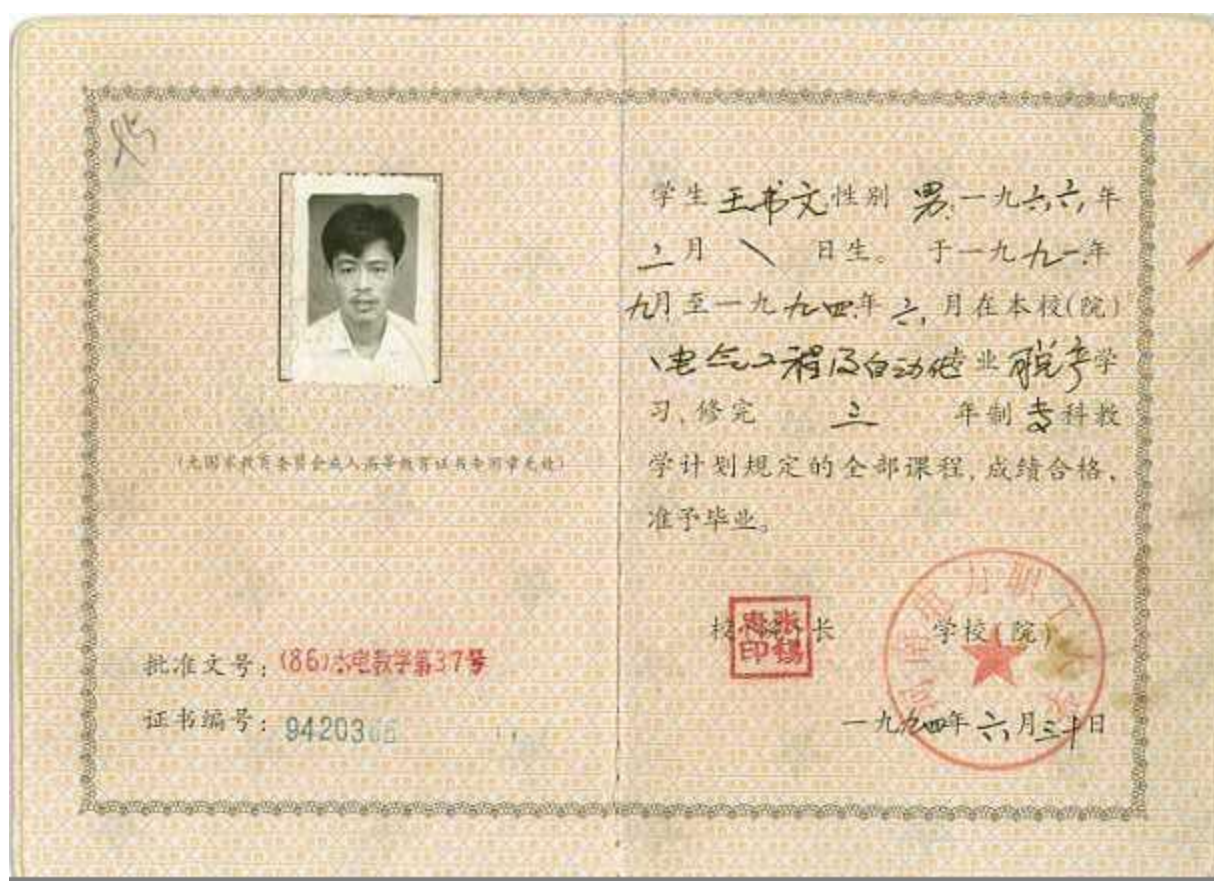 (无国家教育委员会成人高等教育证书专用章无效)
批准文号：(86)水电教学第37号
证书编号：94203
学生 王书文 性别 男，一九六六年
二月 日生。 于一九九一年
九月至一九九四年 六月在本校(院)
电气工程及自动化专业 脱产学
习，修完 三 年制 专科教
学计划规定的全部课程，成绩合格，
准予毕业。
校 长 学校(院)
张锡 印
电力职工大
一九九四年 六月三十日